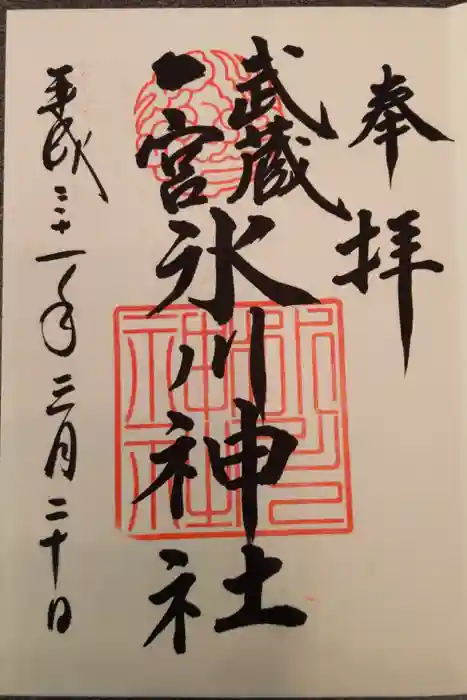 奉拝
武蔵
一宮
氷川神社
平成三十一年三月二十日
氷川神社